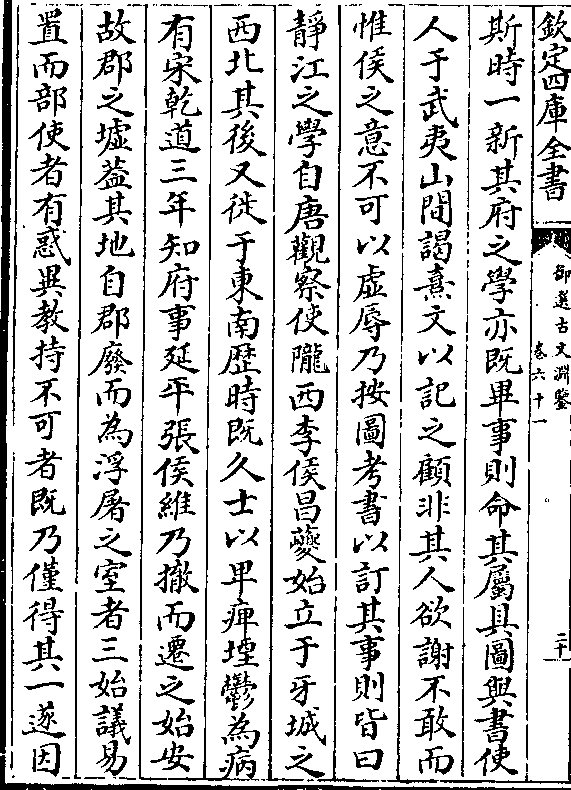 欽定四庫全書
御選古文淵鑒
卷六十一
二十
斯時一新其府之學亦既畢事則命其屬具圖與書使
人于武夷山間謁熹文以記之顧非其人欲謝不敢而
惟侯之意不可以虛辱乃按圖考書以訂其事則皆曰
靜江之學自唐觀察使隴西李侯昌夔始立于牙城之
西北其後又徙于東南歷時既久士以卑痺堙鬱為病
有宋乾道三年知府事延平張侯維乃撤而遷之始安
故郡之墟葢其地自郡廢而為浮屠之室者三始議易
置而部使者有惑異教持不可者既乃僅得其一遂因